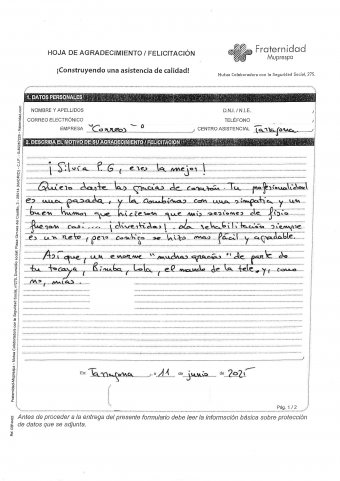 HOJA DE AGRADECIMIENTO / FELICITACIÓN
¡Construyendo una asistencia de calidad!
Fraternidad
Muprespa
Mutua Colaboradora con la Seguridad Social, 275
1. DATOS PERSONALES
NOMBRE Y APELLIDOS
D.N.I. / N.I.E.
CORREO ELECTRÓNICO
TELÉFONO
EMPRESA Correos
CENTRO ASISTENCIAL Tarragona
2. DESCRIBA EL MOTIVO DE SU AGRADECIMIENTO / FELICITACIÓN
¡Silvia P.G, eres la mejor!
Quiero darte las gracias de corazón. Tu profesionalidad
es una pasada, y la combinas con una simpatía y un
buen humor que hicieron que mis sesiones de fisio
fueran casi.... ¡divertidas! La rehabilitación siempre
es un reto, pero contigo se hizo más fácil y agradable.
Así que, un enorme "muchas gracias" de parte de
tu tocaya, Bimba, Lola, el mando de la tele, y, como
no, mías.
En Tarragona, 11 de junio de 2025
Pág. 1 / 2
Antes de proceder a la entrega del presente formulario debe leer la información básica sobre protección
de datos que se adjunta.